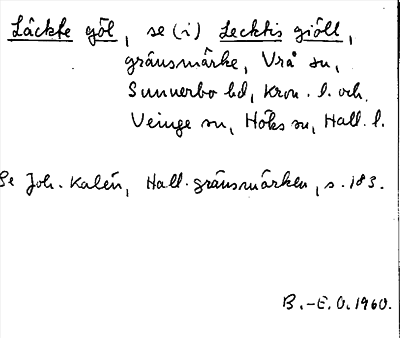 Läckte göl, se (i) Lecktis giöll,
gränsmärke, Vrå sn,
Sunnerbo hd, Kron. l. och
Veinge sn, Höks sn, Hall. l.
Se Joh. Kalén, Hall. gränsmärken, s. 183.
B.-E. O. 1960.